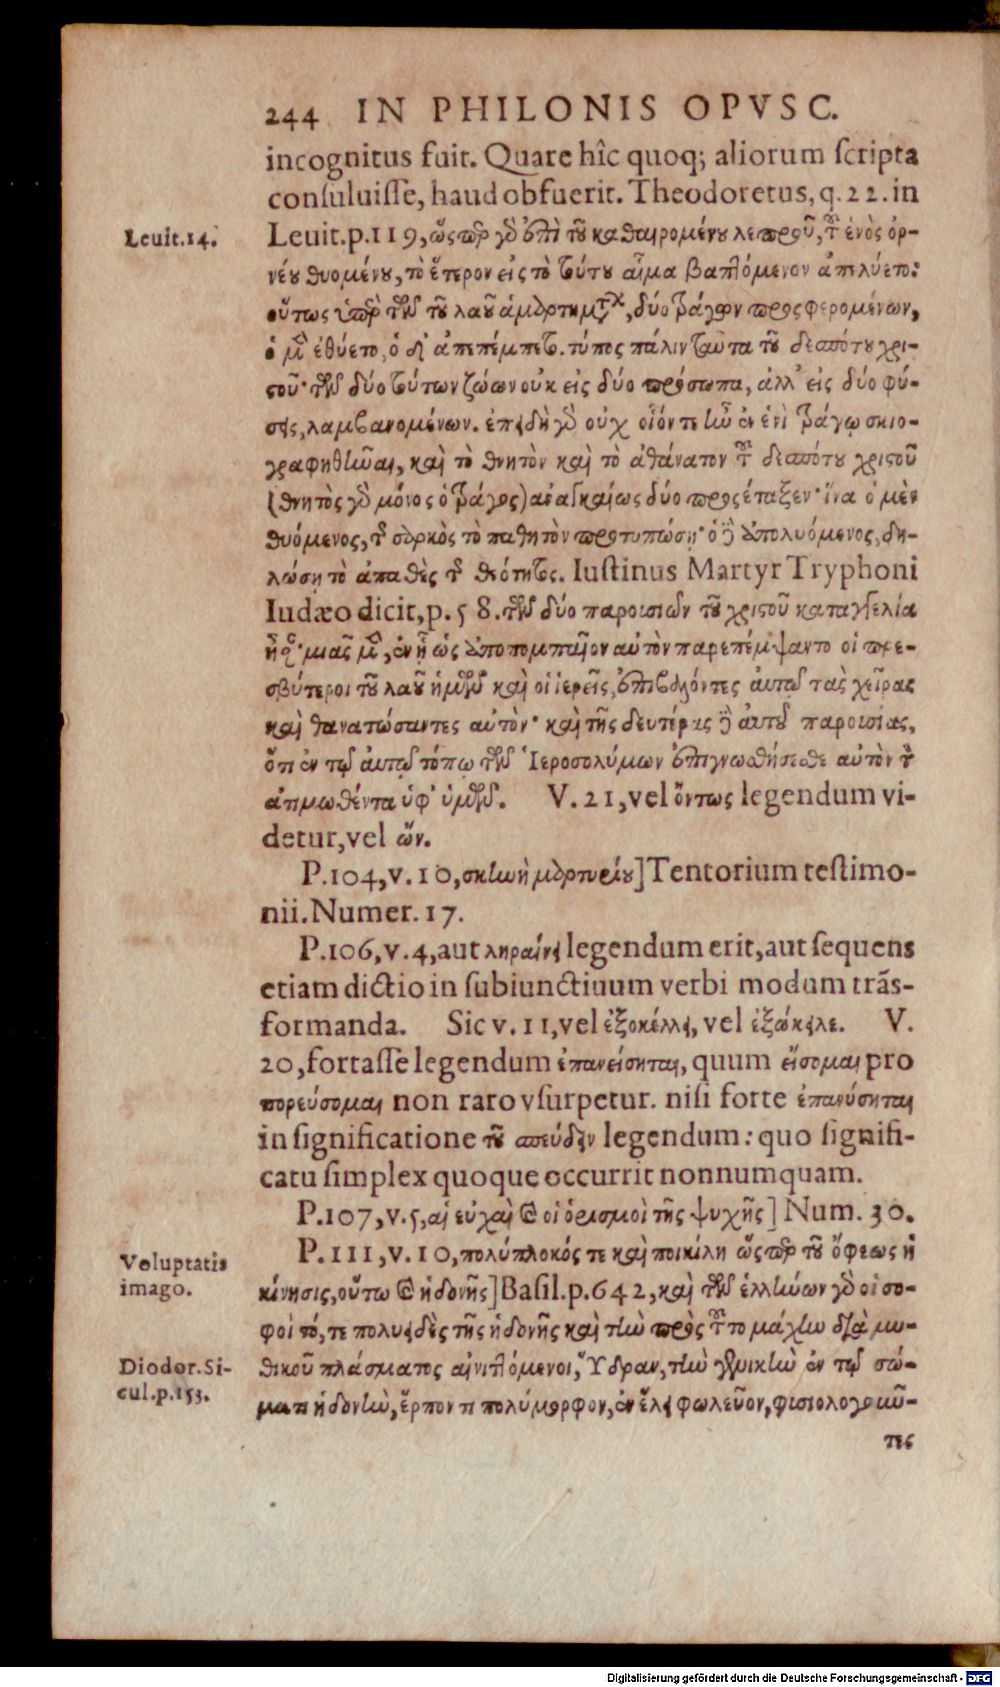 244 IN PHILONIS OPVSC.
incognitus fuit. Quare hîc quoq; aliorum ſcripta
conſuluiſſe, haud obfuerit. Theodoretus, q. 22. in
Leuit.14.
Leuit. p. 119, ὥσπερ γὸ ἐπὶ τοῦ καθαιρομένου λεπροῦ, τοῦ ἑνὸς ὀρ-
νέου θυομένου, τὸ ἕτερον εἰς τὸ τούτου αἷμα βαπτόμενον ἀπελύετο:
οὕτως ὑπὲρ τῶν τοῦ λαοῦ ἁμαρτημάτων, δύο τράγων προσφερομένων,
ὁ μὲν ἐθύετο, ὁ δὲ ἀπεπέμπετο. τύπος πάλιν ταῦτα τοῦ δεσπότου χρι-
στοῦ· τῶν δύο τούτων ζώων οὐκ εἰς δύο πρόσωπα, ἀλλ' εἰς δύο φύ-
σεις, λαμβανομένων. ἐπειδὴ γὸ οὐχ οἷόν τε ἦν ἐν ἑνὶ τράγῳ σκιο-
γραφηθῆναι, καὶ τὸ θνητὸν καὶ τὸ ἀθάνατον τοῦ δεσπότου χριστοῦ
(θνητὸς γὸ μόνος ὁ τράγος) ἀναγκαίως δύο προσέταξεν· ἵνα ὁ μὲν
θυόμενος, τῆς σαρκὸς τὸ παθητὸν προτυπώση· ὁ δὲ ἀπολυόμενος, δη-
λώση τὸ ἀπαθὲς τῆς θεότητος. Iuſtinus Martyr Tryphoni
Iudæo dicit, p. 58. τῶν δύο παρουσιῶν τοῦ χριστοῦ καταγγελία
ἦσαν· μιᾶς μὲν, ἐν ᾗ ὡς ἀποπομπαῖον αὐτὸν παρεπέμψαντο οἱ πρε-
σβύτεροι τοῦ λαοῦ ὑμῶν καὶ οἱ ἱερεῖς, ἐπιβαλόντες αὐτῷ τὰς χεῖρας
καὶ θανατώσαντες αὐτόν· καὶ τῆς δευτέρας δὲ αὐτοῦ παρουσίας,
ὅτι ἐν τῷ αὐτῷ τόπῳ τῶν Ἱεροσολύμων ἐπιγνωσθήσεσθε αὐτὸν τὸν
ἀτιμωθέντα ὑφ' ὑμῶν. V. 21, vel ὄντως legendum vi-
detur, vel ὤν.
P. 104, v. 10, σκηνὴ μαρτυρίου] Tentorium teſtimo-
nii. Numer. 17.
P. 106, v. 4, aut ληραίνει legendum erit, aut ſequens
etiam dictio in ſubiunctiuum verbi modum trãſ-
formanda. Sic v. 11, vel ἐξοκέλλει, vel ἐξώκειλε. V.
20, fortaſſe legendum ἐπανείσηται, quum εἴσομαι pro
πορεύσομαι non raro vſurpetur. niſi forte ἐπανύσηται
in ſignificatione τοῦ σπεύδειν legendum: quo ſignifi-
catu ſimplex quoque occurrit nonnumquam.
P. 107, v. 5, αἱ εὐχαὶ καὶ οἱ ὁρισμοὶ τῆς ψυχῆς] Num. 30.
Voluptatis
imago.
P. 111, v. 10, πολύπλοκός τε καὶ ποικίλη ὥσπερ τοῦ ὄφεως ἡ
κίνησις, οὕτω καὶ ἡδονῆς] Baſil. p. 642, καὶ τῶν ἑλλήνων γὸ οἱ σο-
φοὶ τό, τε πολυειδὲς τῆς ἡδονῆς καὶ τὴν πρὸς τοῦτο μάχην διὰ μυ-
Diodor. Si-
cul. p. 153.
θικοῦ πλάσματος αἰνιττόμενοι, Ὕδραν, τὴν γενικὴν ἐν τῷ σώ-
ματι ἡδονὴν, ἕρπον τι πολύμορφον, ἐν ἕλει φωλεῦον, φυσιολογοῦν-
τες
Digitalisierung gefördert durch die Deutsche Forschungsgemeinschaft - DFG